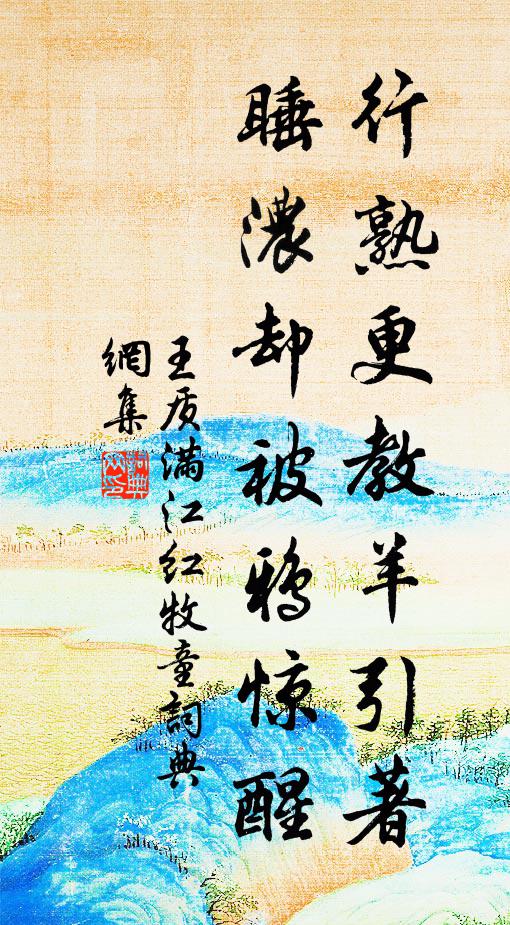 行熟更教羊引著
睡濃却被鴉惊醒
王质满江红牧童詞典
網集
詞典